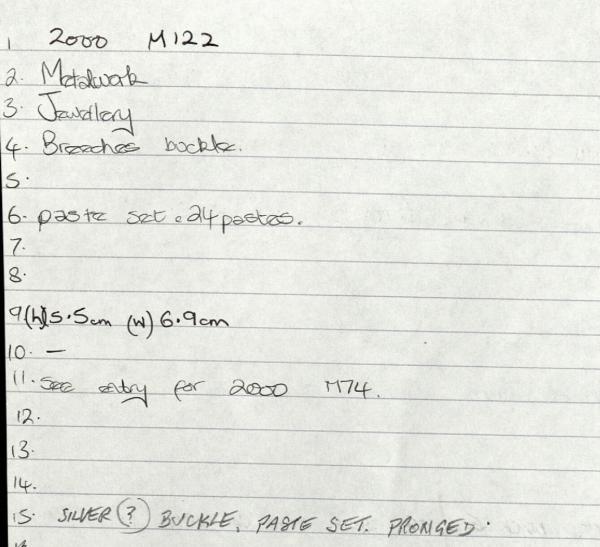 1 2000 M122
2. Metalwork
3. Jewellery
4. Breeches buckle.
5.
6. paste set. 24 pastes.
7.
8.
9 (h) 5.5cm (w) 6.9cm
10. —
11. see entry for 2000 M74.
12.
13.
14.
15. SILVER (?) BUCKLE, PASTE SET. PRONGED.